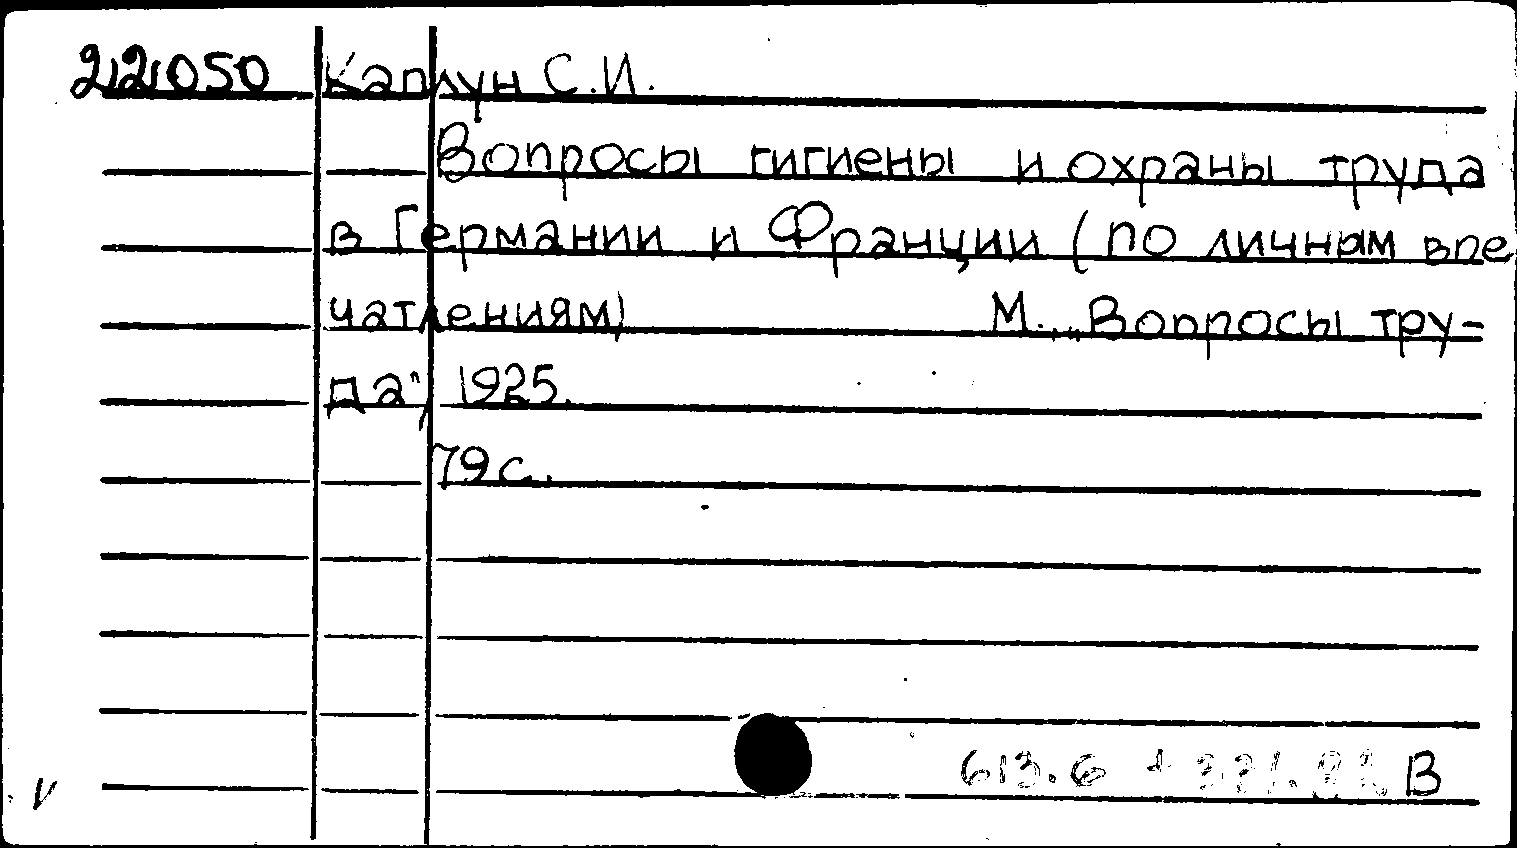 212050 Каплун С.И.
Вопросы гигиены и охраны труда
в Германии и Франции (по личным впе
чатлениям) М., „Вопросы тру-
да", 1925.
79 с.
613.6 + 331.82 В
V